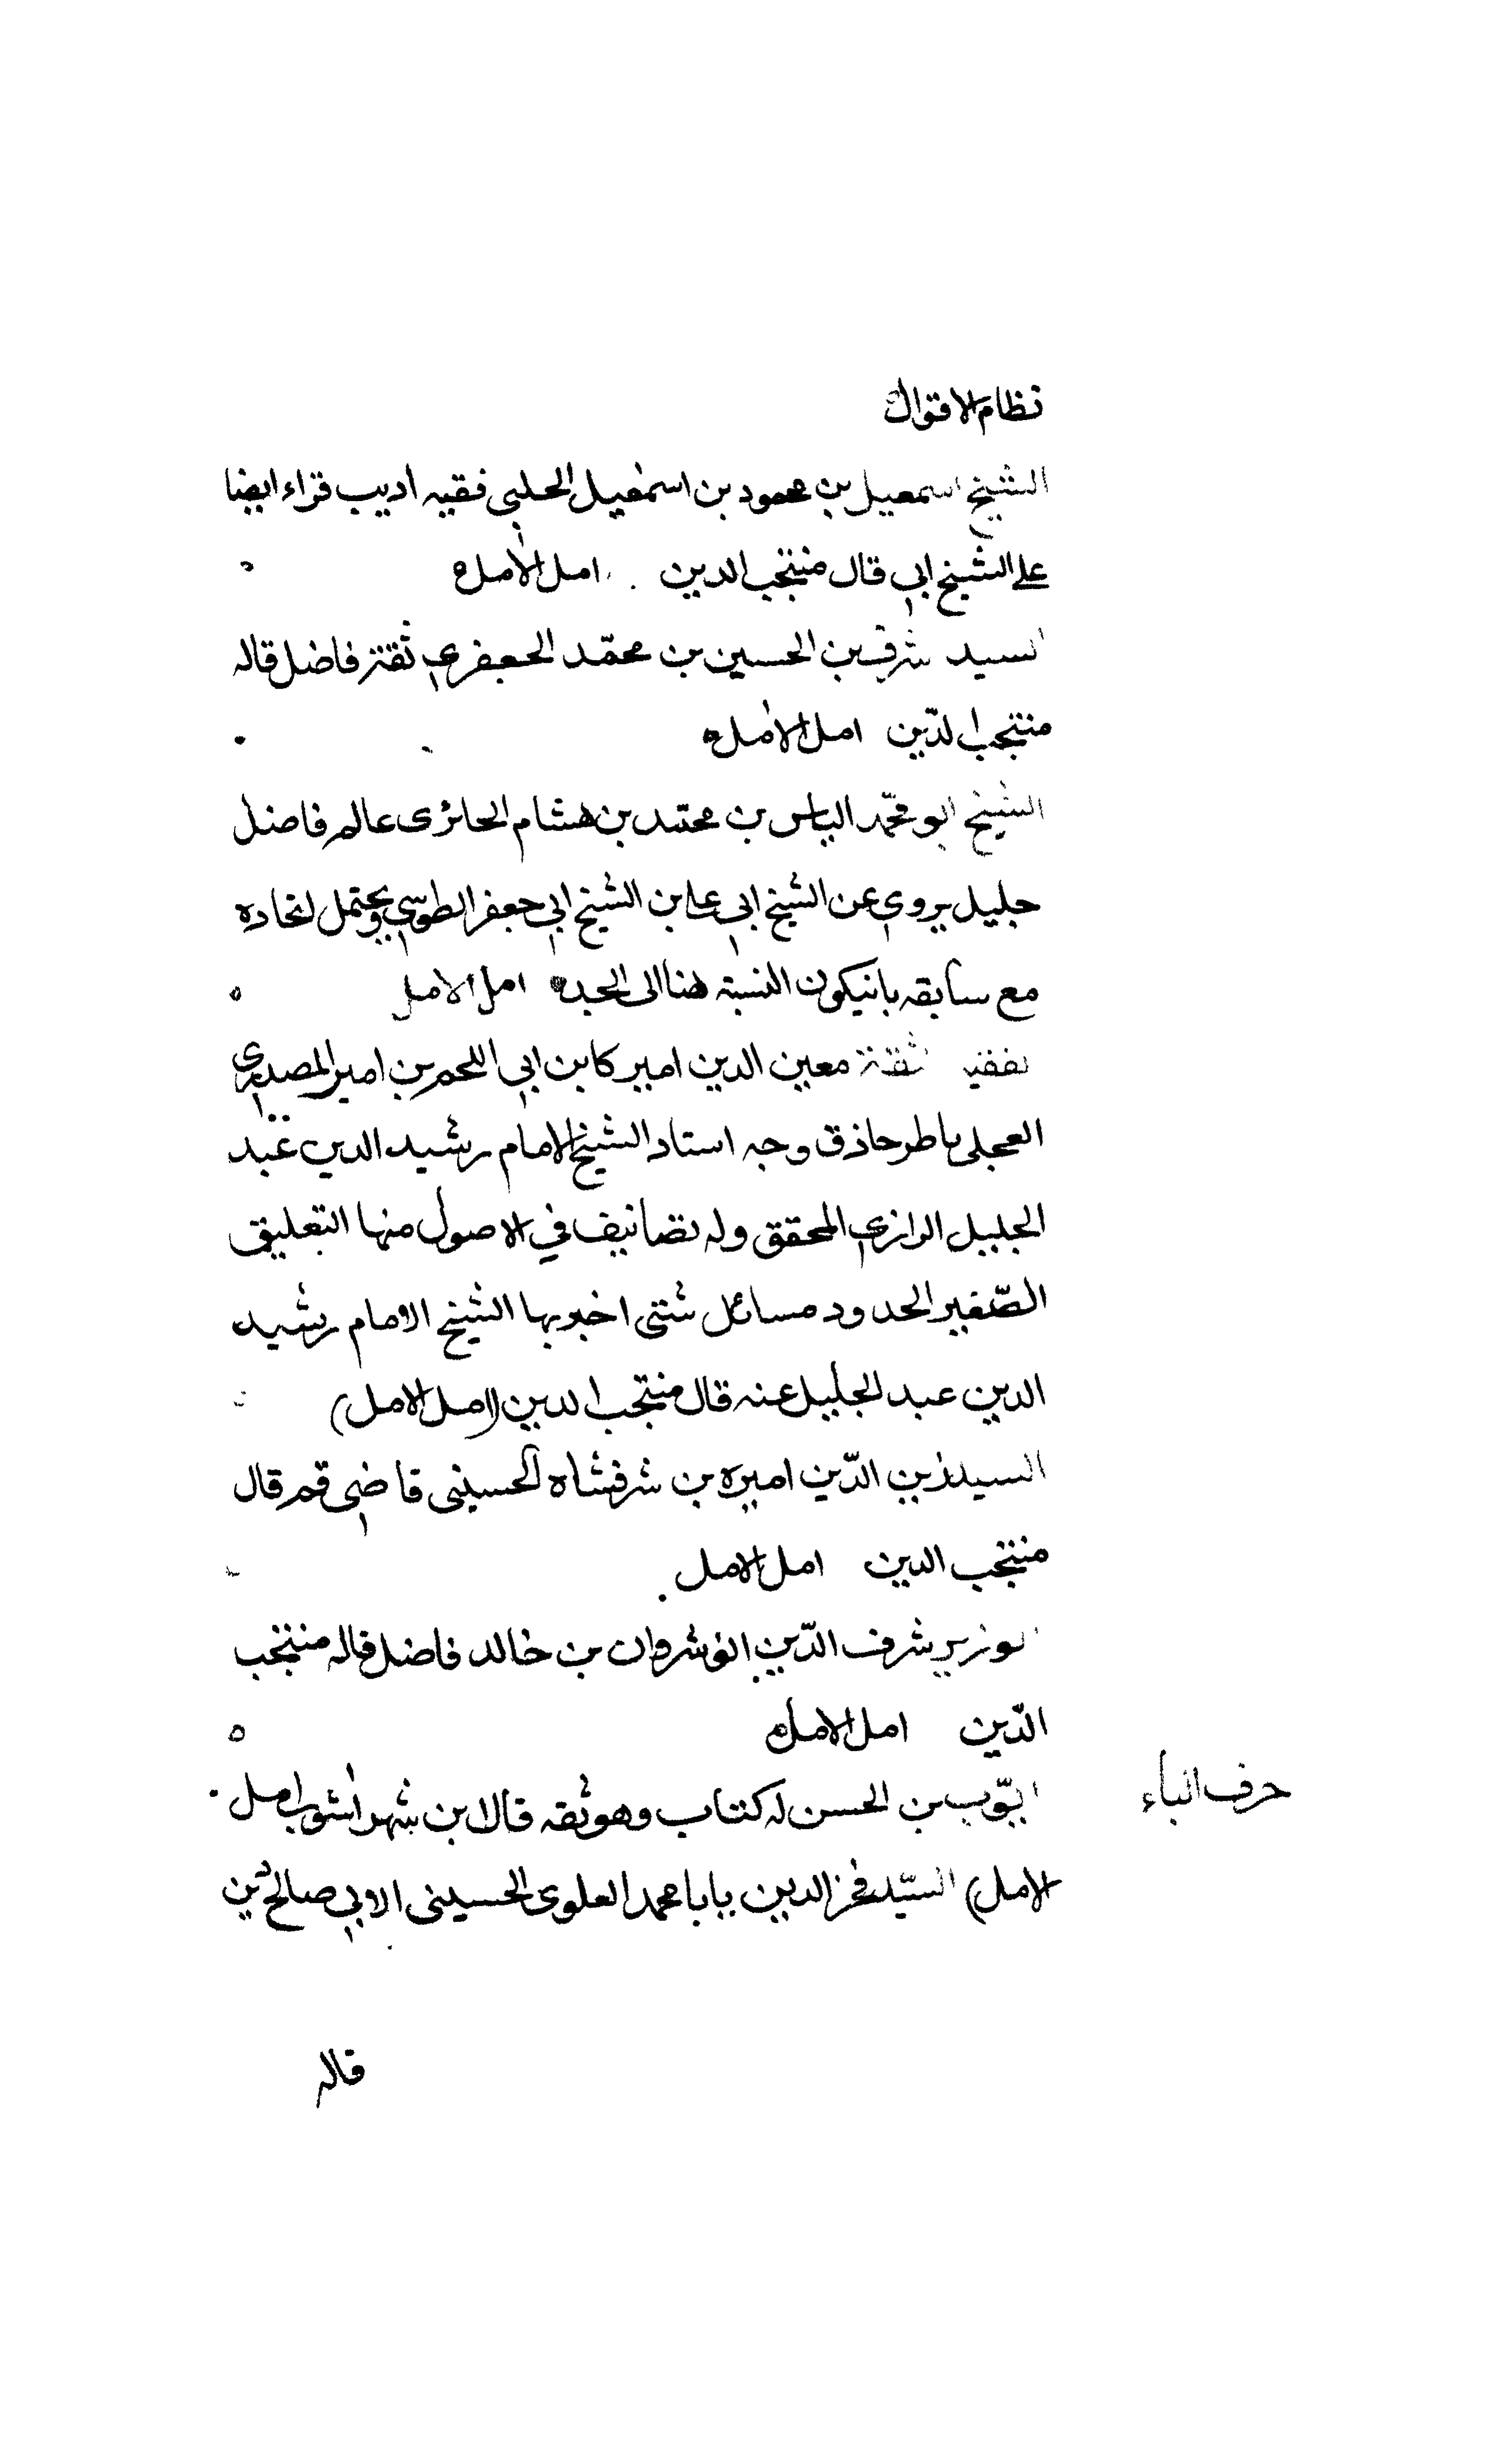 نظام الاقوال
الشيخ اسمعيل بن محمود بن اسمعيل الحلبي فقيه اديب قراء ايضا
على الشيخ ابي قال منتجب الدين امل الامل
السيد شرف بن الحسين بن محمّد الجعفري ثقة فاضل قاله
منتجب الدّين امل الامل
الشيخ ابو محمّد الياس بن محمّد بن هشام الحائرى عالم فاضل
جليل يروى عن الشيخ ابي على بن الشيخ ابي جعفر الطوسي ويحتمل اتحاده
مع سابقه بانيكون النسبة هنا الى الجد امل الامل
لفقيه ثقة معين الدين اميركا بن ابي اللحم بن اميرا المصدرى
العجلى مناظر حاذق وجه استاد الشيخ الامام رشيد الدين عبد
الجليل الرازى المحقق وله تصانيف في الاصول منها التعليق
الصّغير الحدود مسائل شتى اخبر بها الشيخ الامام رشيد
الدين عبد الجليل عنه قال منتجب الدين (امل الامل)
السيد زين الدّين اميره بن شرفشاه الحسينى قاضى قم قال
منتجب الدين امل الامل
لوزير شرف الدّين انوشروان بن خالد فاضل قاله منتجب
الدّين امل الامل
حرف الباء
ايّوب بن الحسن له كتاب وهو ثقه قال ابن شهر اشوب امل
الامل) السيّد فخر الدين بابا محمد العلوى الحسينى الابي صالح دين
قاله